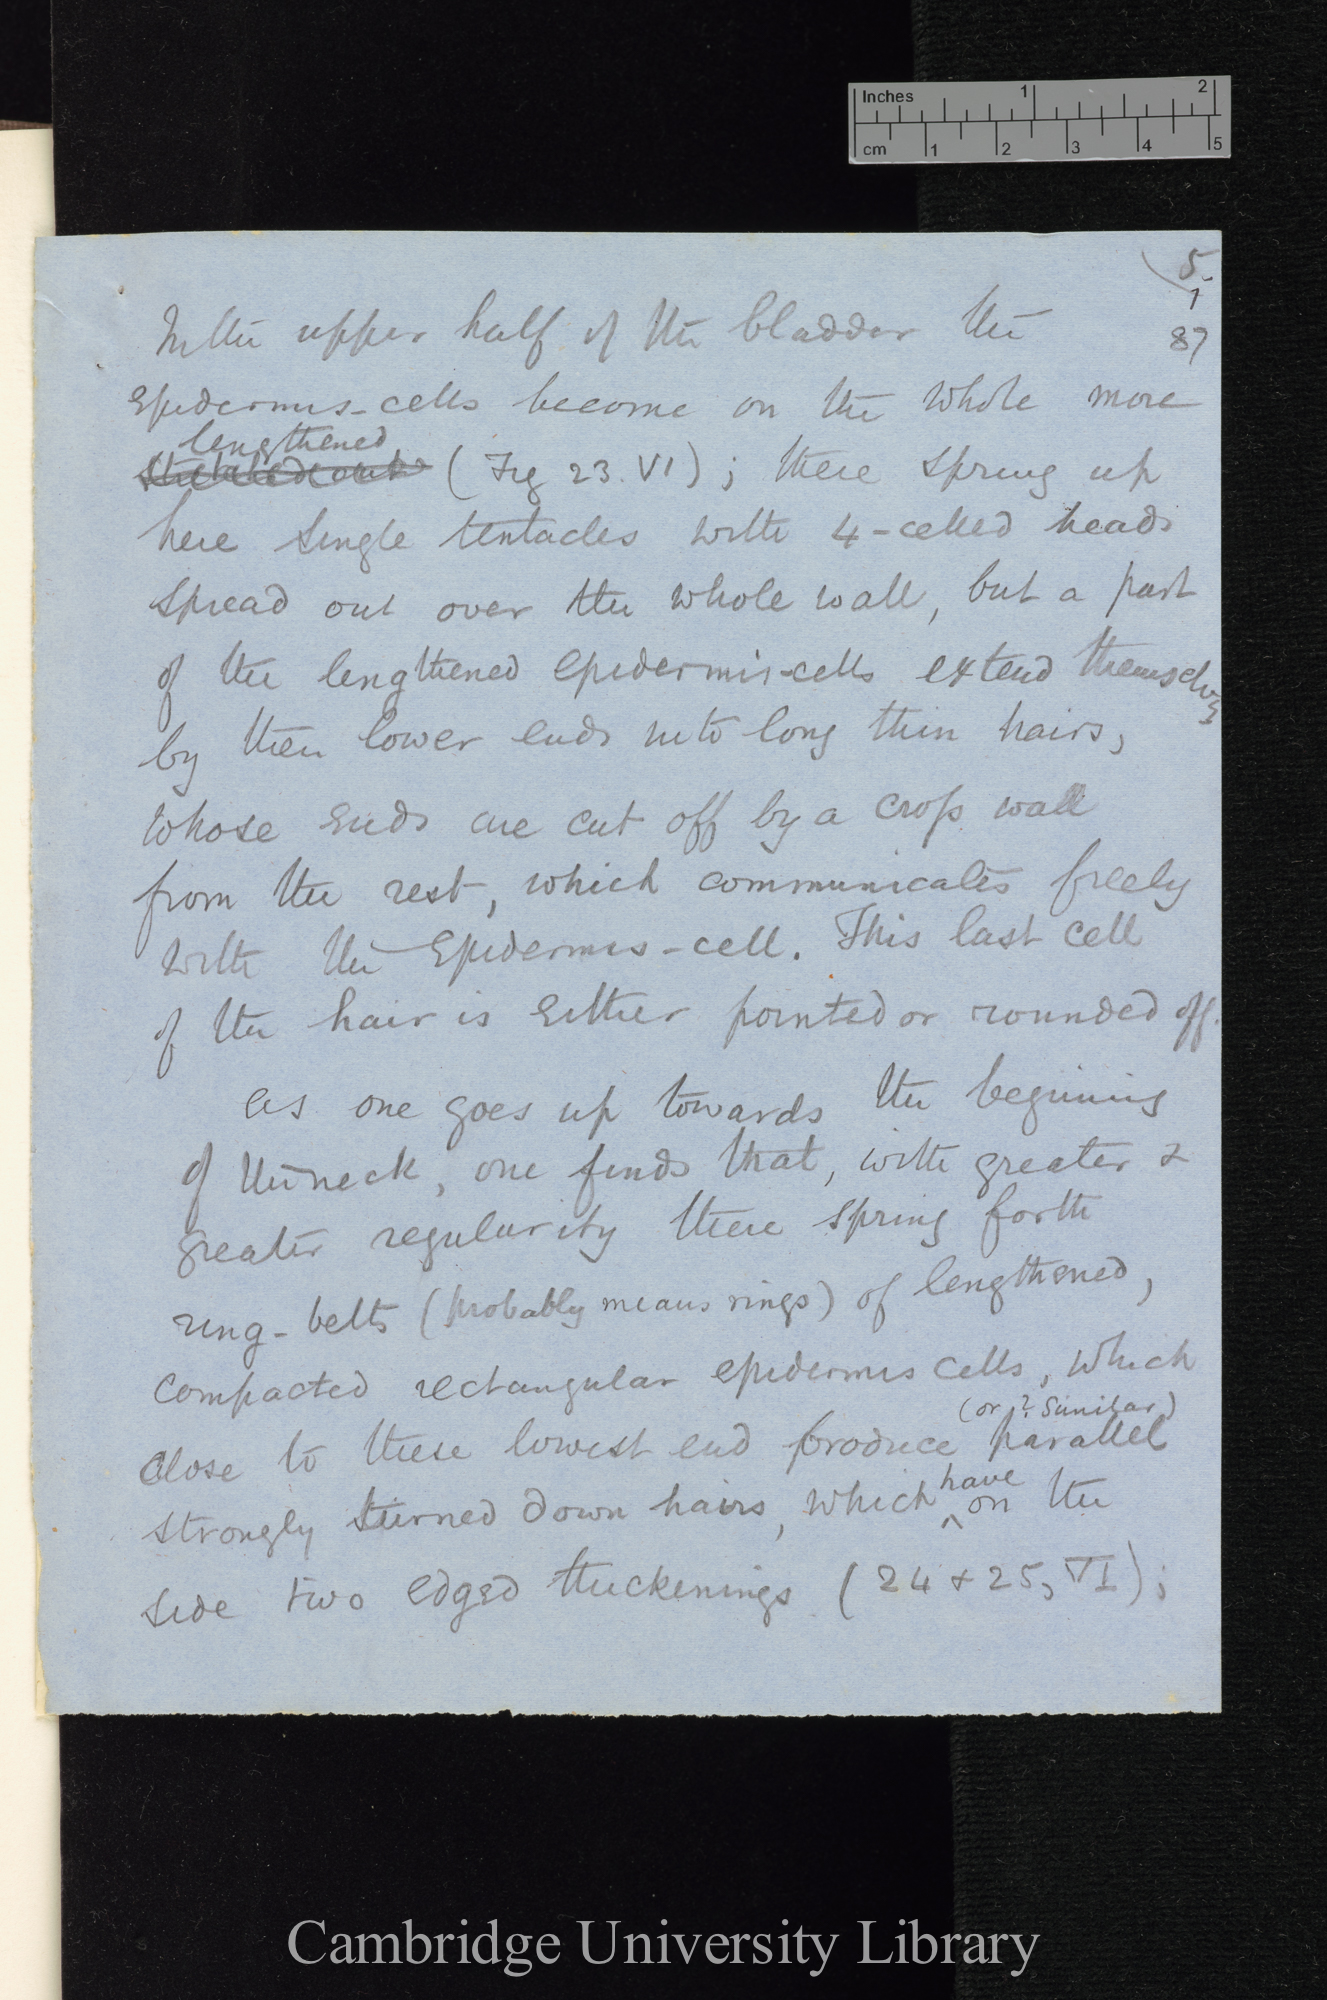 Inches 1 2
cm 1 2 3 4 5
5.
1
87
In the upper half of the bladder the
epidermis-cells become on the whole more
lengthened
stretched out (Fig 23. VI); there spring up
here single tentacles with 4-celled heads
spread out over the whole wall, but a part
of the lengthened epidermis-cells extend themselves
by their lower ends into long thin hairs,
whose ends are cut off by a cross wall
from the rest, which communicates freely
with the Epidermis-cell. This last cell
of the hair is either pointed or rounded off.
As one goes up towards the begining
of the neck, one finds that, with greater &
greater regularity there spring forth
ring-belts (probably means rings) of lengthened,
compacted rectangular epidermis cells, which
(or ? Similar)
close to these lowest end produce parallel
have
strongly turned down hairs, which ^ on the
side two edged thickenings (24 & 25, VI);
Cambridge University Library